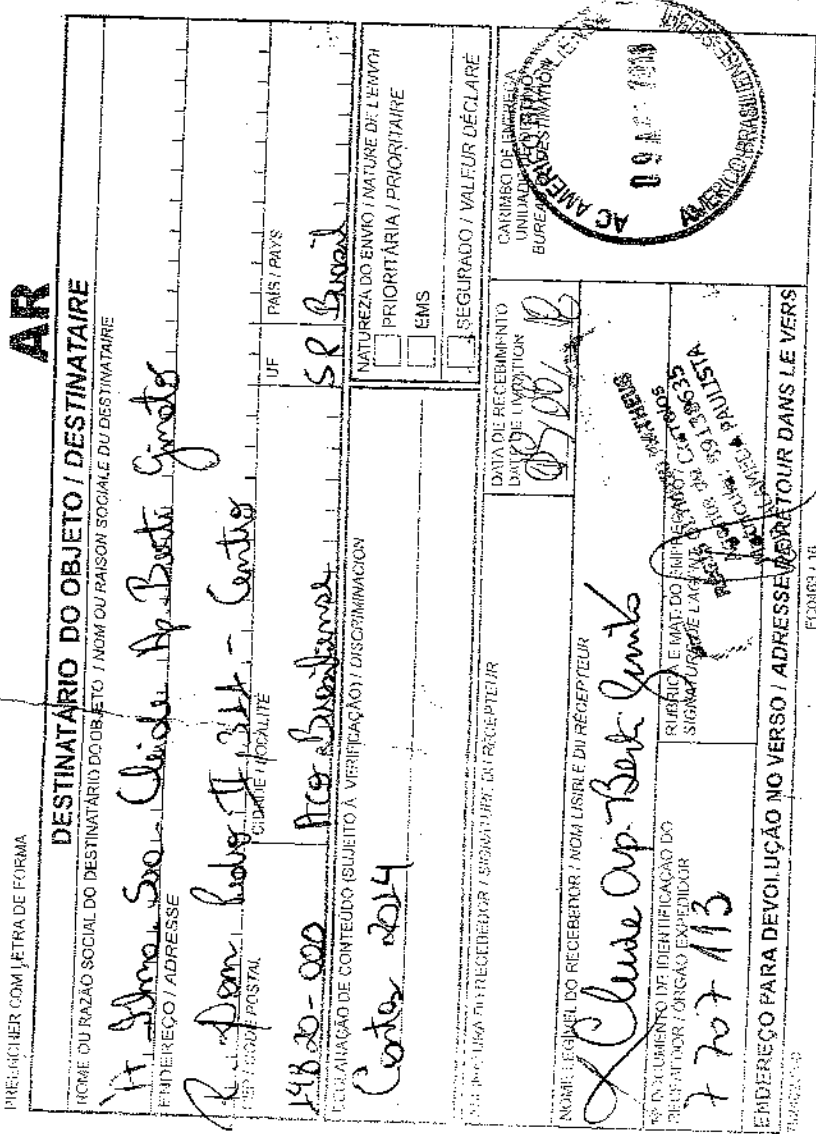 PREENCHER COM LETRA DE FORMA
AR
DESTINATÁRIO DO OBJETO / DESTINATAIRE
NOME OU RAZÃO SOCIAL DO DESTINATÁRIO DO OBJETO / NOM OU RAISON SOCIALE DU DESTINATAIRE
Ilma. Sra. Cleide Ap. Berti Ginato
ENDEREÇO / ADRESSE
R. Dom Pedro II, 344 - Centro
CEP / CODE POSTAL
CIDADE / LOCALITÉ
UF
PAÍS / PAYS
14820-000
Aco Brasiliense
SP
Brasil
DECLARAÇÃO DE CONTEÚDO (SUJEITO À VERIFICAÇÃO) / DISCRIMINACION
NATUREZA DO ENVIO / NATURE DE L'ENVOI
Contas 2014
PRIORITÁRIA / PRIORITAIRE
EMS
SEGURADO / VALEUR DÉCLARÉ
ASSINATURA DO RECEBEDOR / SIGNATURE DU RÉCEPTEUR
DATA DE RECEBIMENTO
DATE DE LIVRATION
CARIMBO DE ENTREGA
UNIDADE DE DESTINO
BUREAU DE DESTINATION
AC AMERICO
09
AMERICO BRASILIENSE
NOME LEGÍVEL DO RECEBEDOR / NOM LISIBLE DU RÉCEPTEUR
Cleide Ap. Berti Ginato
Nº DOCUMENTO DE IDENTIFICAÇÃO DO
RECEBEDOR / ÓRGÃO EXPEDIDOR
7 707 113
RUBRICA E MAT. DO EMPREGADO /
SIGNATURE DE L'AGENT
MATHEUS
PAULISTA
ENDEREÇO PARA DEVOLUÇÃO NO VERSO / ADRESSE DE RETOUR DANS LE VERS
FC0463 / 16